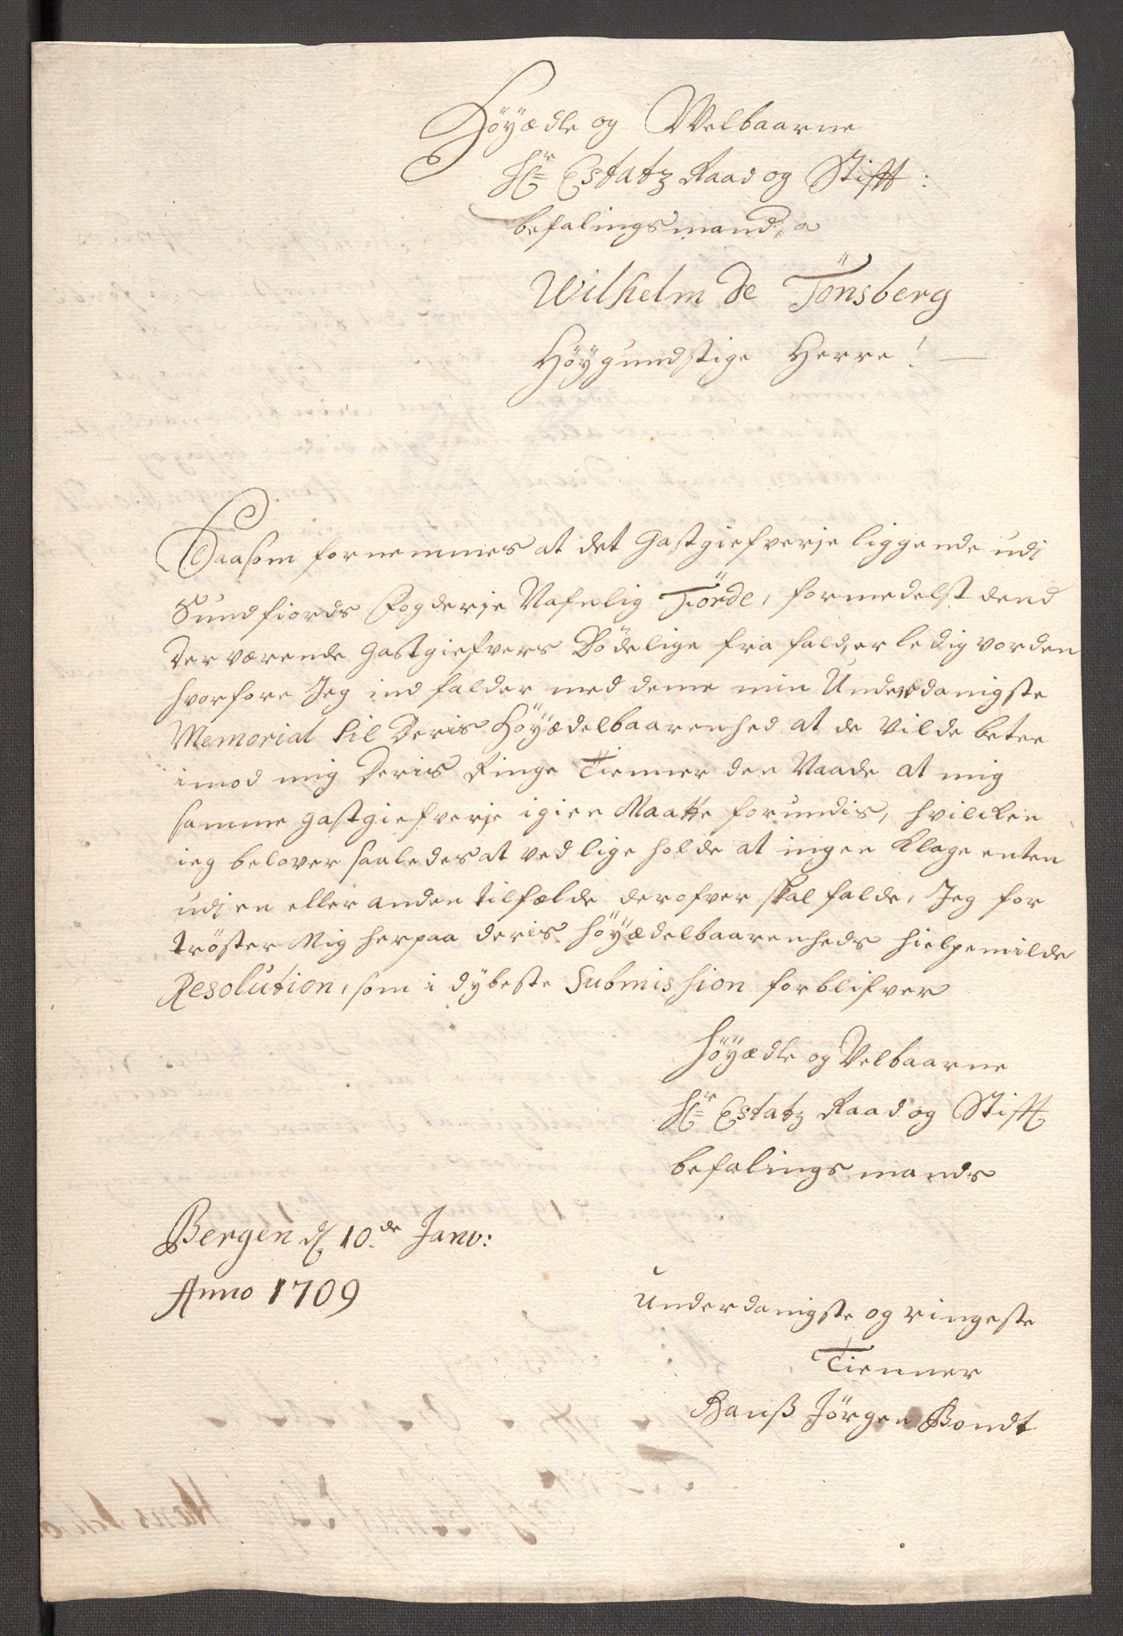 Höyædle og Welbaarne
Hr Estatz Raad og Stift:
befalingsmand
Wilhelm de Tönsberg
Höygundstige Herre!
Saasom fornemmes at det Gastgiefverje liggende udi
Sundfiords Fogderje Nafnlig Förde, formedelst dend
der værende Gastgiefvers Dödelige frafald, er ledig vorden
hvorfore Jeg indfalder med denne min Underdanigste
Memorial til Deris Höyædelbaarenhed at de vilde betee
imod mig Deris Ringe Tienner den Naade at mig
samme Gastgiefverje igien Maatte forundis, hvilcken
ieg belover saaledes at vedligeholde at ingen Klage enten
udi en eller anden tilfælde derofver skal falde, Jeg for
tröster Mig herpaa deris Höyædelbaarenheds hielpemilde
Resolution, som i dybeste Submission forblifver
Höyædle og Velbaarne
Hr Estatz Raad og Stift
befalingsmands
Bergen d 10de Janv:
Anno 1709
Underdanigste og ringeste
Tienner
Hanß Jörgen Bondt